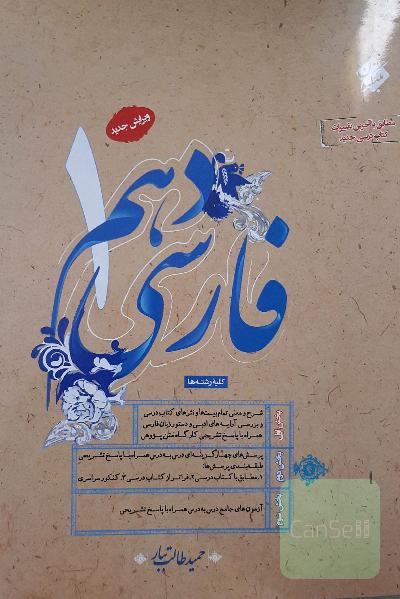 مبتکران
مطابق با آخرین تغییرات
کتاب درسی جدید
ویرایش جدید
فارسی دهم ۱
کلیه رشته‌ها
بخش اول
شرح و معنی تمام بیت‌ها و نثرهای کتاب درسی
و بررسی آرایه‌های ادبی و دستور زبان فارسی
همراه با پاسخ تشریحی کارگاه متن پژوهی
بخش دوم
پرسش‌های چهارگزینه‌ای درس به درس همراه با پاسخ تشریحی
طبقه‌بندی پرسش‌ها:
۱. مطابق با کتاب درسی ۲. فراتر از کتاب درسی ۳. کنکور سراسری
بخش سوم
آزمون‌های جامع درس به درس همراه با پاسخ تشریحی
حمید طالب تبار
CanSell